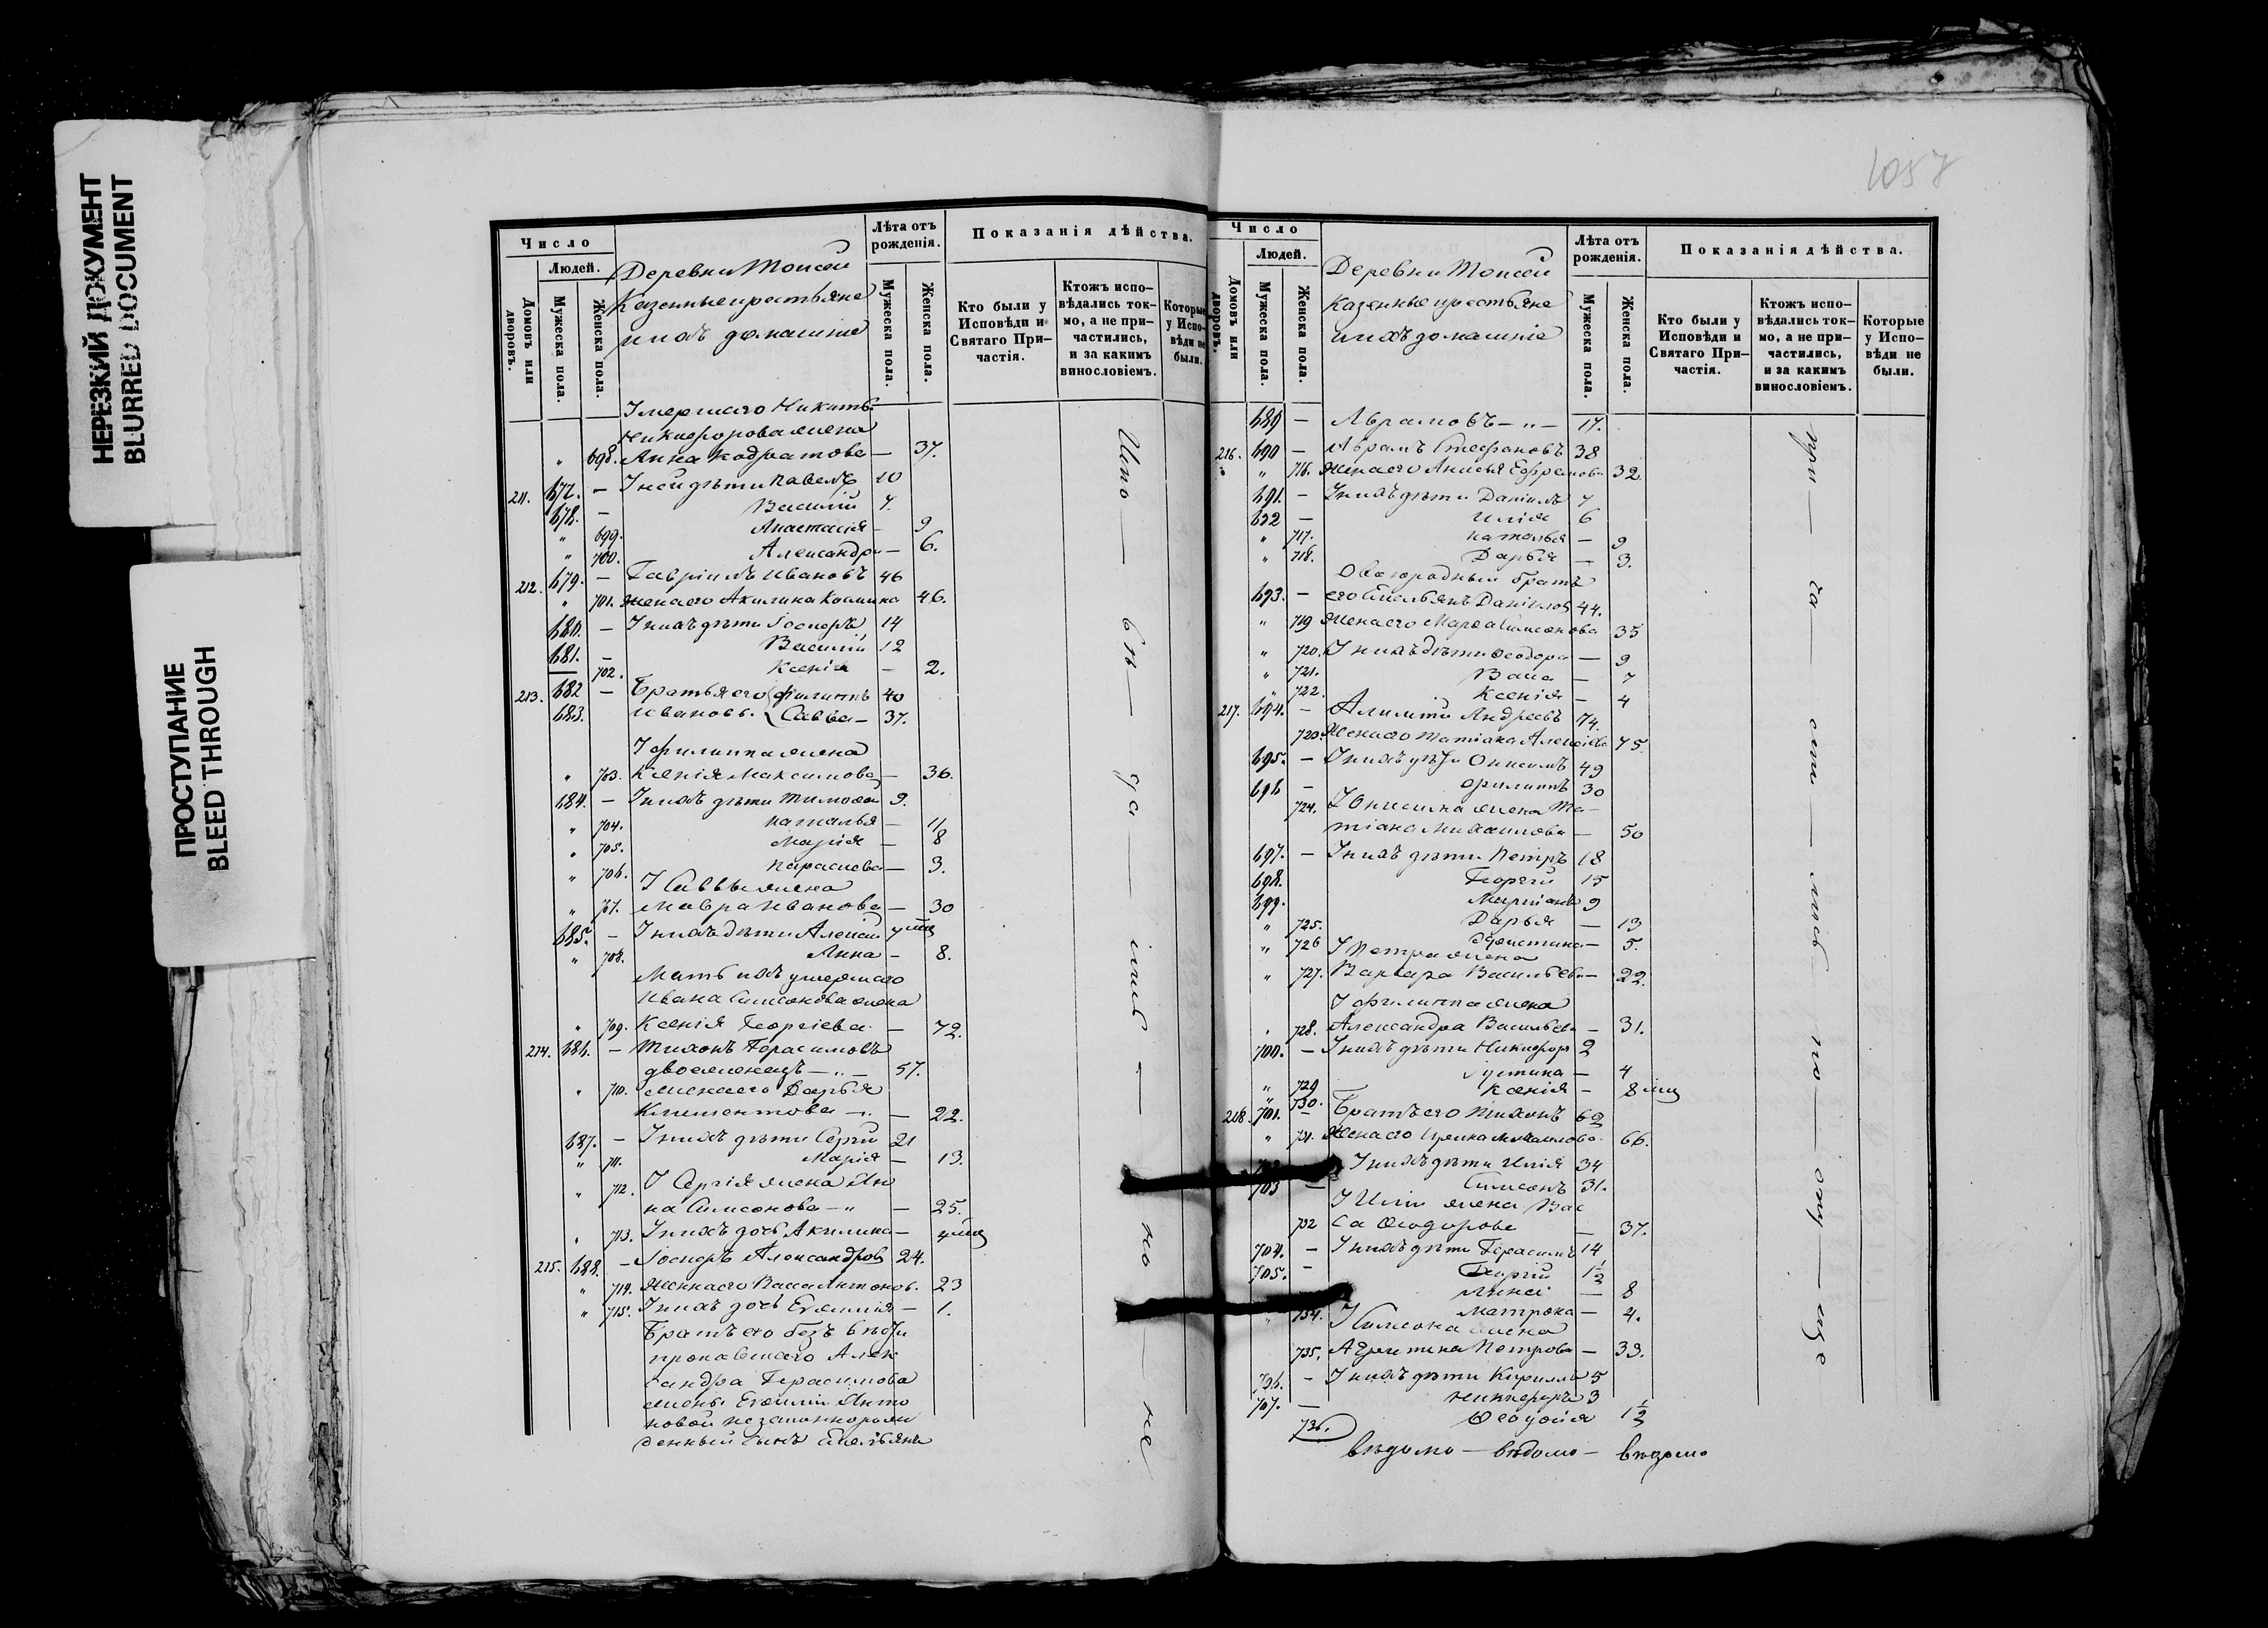 НЕРЕЗКИЙ ДОКУМЕНТ
BLURRED DOCUMENT
ПРОСТУПАНИЕ
BLEED THROUGH
Число
Людей.
Домовъ или дворовъ.
Мужеска пола.
Женска пола.
Деревни Моисеи
Казенные крестьяне
и ихъ домашніе
Лѣта отъ рожденія.
Мужеска пола.
Женска пола.
Показанія дѣйства.
Кто были у Исповѣди и Святаго При-частія.
Ктожъ испо-вѣдались ток-мо, а не при-частились, и за какимъ винословіемъ.
Которые у Испо-вѣди не были.
Умершаго Никиты
Никифорова жена
" 698. Анна Кодратова — 37.
211. 677. — У ней дѣти Павелъ 10
678. — Василій 7.
" 699. Анастасія — 9
" 700. Александра — 6.
212. 679. — Гавріилъ Ивановъ 46
" 701. Жена его Акилина Козмина 46.
680. — У нихъ дѣти Іосифъ 14
681. — Василій 12
— 702. Ксенія — 2.
213. 682 — Братья его Филиппъ 40
683. Ивановы. Савва — 37.
У Филиппа жена
" 703. Ксенія Максимова — 36.
684. — У нихъ дѣти Тимофей 9.
" 704. Наталья — 11
" 705. Марія — 8
" 706. Параскева — 3.
У Саввы жена
" 707. Мавра Иванова — 30
685. — У нихъ дѣти Алексій 7 мц
" 708. Анна — 8.
Мать ихъ умершаго
Ивана Симеонова жена
" 709. Ксенія Георгіева — 72.
214. 686. — Тихонъ Герасимовъ
двоеженецъ — " — 57.
" 710. Жена его Дарья
Климентова — 22.
687. — У нихъ дѣти Сергій 21
" 711. Марія — 13.
" 712. У Сергія жена Ан
на Симеонова — " — 25.
" 713. У нихъ дочь Акилина — 4 мц
215. 688. — Іосифъ Александровъ 24.
" 714. Жена его Васса Антонов. 23
" 715. У нихъ дочь Евфимія — 1.
Братъ его безъ вѣсти
пропавшаго Алек
сандра Герасимова
жены Евфиміи Анто
новой незаконнорож
денный сынъ Емельянъ
Что — бы — да — лишь — но — не
1057
Число
Людей.
Домовъ или дворовъ.
Мужеска пола.
Женска пола.
Деревни Моисеи
Казенные крестьяне
и ихъ домашніе
Лѣта отъ рожденія.
Мужеска пола.
Женска пола.
Показанія дѣйства.
Кто были у Исповѣди и Святаго При-частія.
Ктожъ испо-вѣдались ток-мо, а не при-частились, и за какимъ винословіемъ.
Которые у Испо-вѣди не были.
689 — Аврамовъ — " — 17.
216. 690 — Аврамъ Стефановъ 38
" 716. Жена его Анисья Ефремова 32.
691. — У нихъ дѣти Даніилъ 7
692 — Илія 6
" 717. Наталья — 9
" 718. Дарья — 3.
Двоюродный братъ
693. — его Емельянъ Даніилов 44.
" 719 Жена его Марѳа Симеонова 35
" 720. У нихъ дѣти Ѳеодора — 9
" 721. Васса — 7
" 722. Ксенія — 4
217. 694. — Алимпій Андреевъ 74.
720 Жена его Татіана Алексіева 75
695. — У нихъ дѣти Онисимъ 49
696 — Филиппъ 30
724. У Онисима жена Та-
тіана Михаилова — 50
697. — У нихъ дѣти Петръ 18
698. Георгій 15
699. 9
" 725. Дарья — 13
" 726 — 5.
У Петра жена
" 727. Варвара Васильева — 22.
У Филиппа жена
" 728. Александра Васильева — 31.
700. — У нихъ дѣти Никифоръ 2
729 Устина — 4
" 730. Ксенія — 8 мц
218. 701. — Братъ его Тихонъ 62
" 731. Жена его Ирина Михаилова 66.
У нихъ дѣти Илія 34
703 — Симеонъ 31.
У Иліи жена Вас
732 са Ѳеодорова — 37.
704. — У нихъ дѣти Герасимъ 14
705. — Георгій 1½
— 8
" 734. Матрона — 4.
У Симеона жена
735. Петрова — 33.
706. — У нихъ дѣти Кириллъ 5
707. — Никифоръ 3
736. 1½
вѣдомо — вѣдомо — вѣдомо